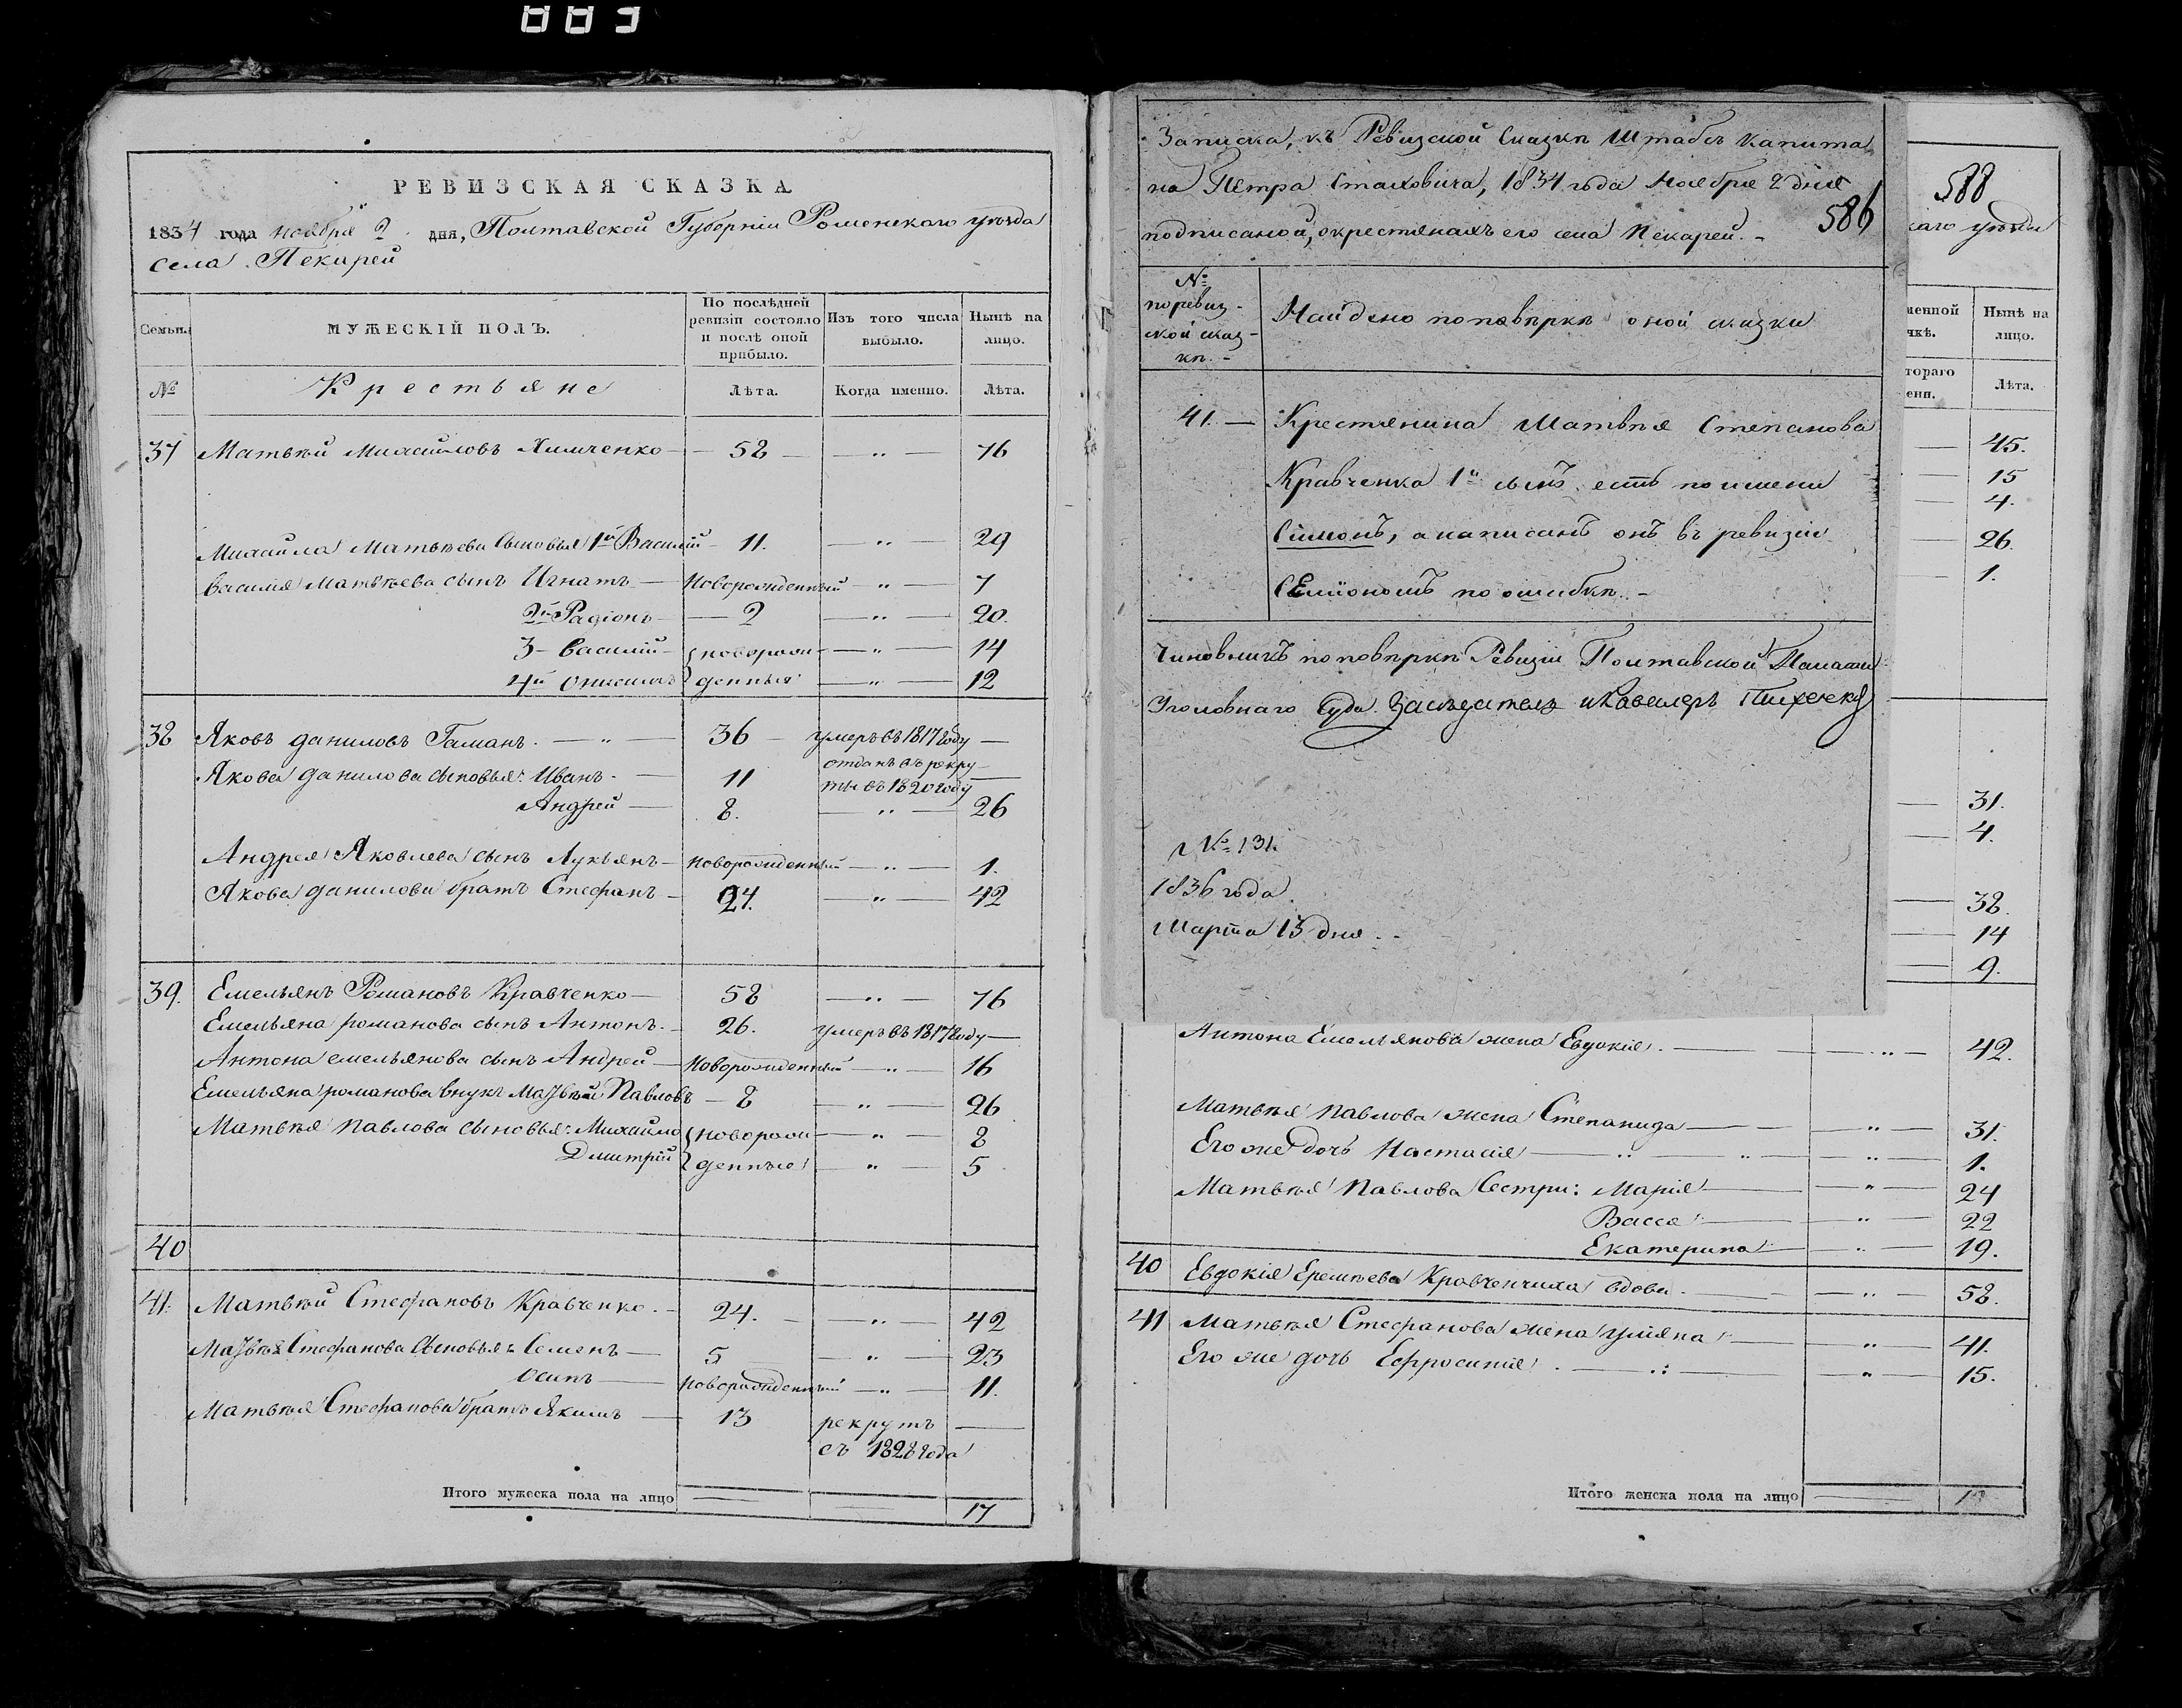 РЕВИЗСКАЯ СКАЗКА
1834 года ноября 2 дня, Полтавской Губерніи Роменскаго уѣзда
села Пекарей
Семьи.
МУЖЕСКІЙ ПОЛЪ.
По послѣдней ревизіи состояло и послѣ оной прибыло.
Изъ того числа выбыло.
Нынѣ на лицо.
№ Крестьяне Лѣта. Когда именно. Лѣта.
37 Матвѣй Михайловъ Химченко — 58 — " — 76
Михайла Матвѣева сыновья 1й Василій — 11. — " — 29
Василія Матвѣева сынъ Игнатъ — новорожденный " — 7
2й Радіонъ — 2 — " — 20.
3 — Василій — новорож — " — 14
4й Онисимъ денныя — " — 12
38 Яковъ Даниловъ Гаманъ. — " — 36 — умеръ въ 1817 году —
Якова Данилова сыновья: Иванъ. — 11 отданъ въ рекру
ты въ 1820 году —
Андрей — 8. — " — 26
Андрея Яковлева сынъ Лукьянъ — новорожденный — " — 1.
Якова Данилова братъ Стефанъ — 24. — " — 42
39. Емельянъ Романовъ Кравченко — 58 — " — 76
Емельяна Романова сынъ Антонъ. — 26. умеръ въ 1817 году —
Антона Емельянова сынъ Андрей — новорожденный — " — 16
Емельяна Романова внукъ Матвѣй Павловъ — 8 — " — 26
Матвѣя Павлова сыновья: Михайло новорож — " — 8
Дмитрій денные — " — 5
40
41. Матвѣй Стефановъ Кравченко. — 24. — " — 42
Матвѣя Стефанова сыновья: Семенъ — 5 — " — 23
Осипъ — новорожденный — " — 11.
Матвѣя Стефанова братъ Якимъ — 13 рекрутъ —
съ 1828 года
Итого мужеска пола на лицо 17
Записка, къ Ревизской Сказкѣ Штабсъ Капита
на Петра Стаховича, 1834 года Ноября 2 дня
подписаной, о крестянахъ его села Пекарей. —
586
№ по ревиз-
ской сказ-
кѣ. —
Найдено по повѣркѣ оной сказки
41. — Крестянина Матвѣя Степанова
Кравченка 1й сынъ есть по имени
Симонъ, а написанъ онъ въ ревизіи
Семіономъ по ошибкѣ. —
Чиновникъ по повѣркѣ Ревизіи Полтавской Палаты
Уголовнаго Суда Засѣдатель и Кавалеръ
№ 131.
1836 года.
Марта 13 дня. —
588
каго уѣзда
менной
чкѣ.
Нынѣ на лицо.
тораго
ени.
Лѣта.
— 45.
— 15
— 4.
— 26.
— 1.
— 31.
— 4.
— 38.
— 14
— 9.
Антона Емельянова жена Евдокія. — " — 42.
Матвѣя Павлова жена Степанида — " — 31.
Его же дочь Настасія — " — 1.
Матвѣя Павлова Сестри: Марія — " — 24
Васса — " — 22
Екатерина — " — 19.
40 Евдокія Еремѣева Кравченчиха вдова. — " — 58.
41 Матвѣя Стефанова жена Уліяна — " — 41.
Его же дочь Ефросинія. — " — 15.
Итого женска пола на лицо